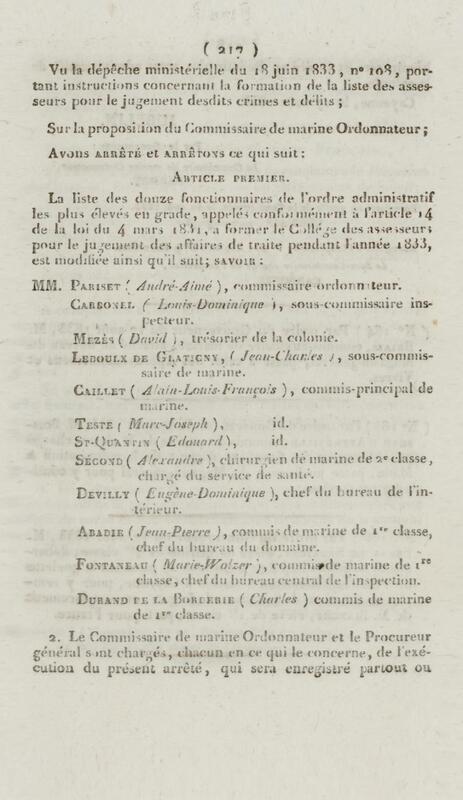 ( 217 )
Vu la dépêche ministérielle du 18 juin 1833, n° 108, por-
tant instructions concernant la formation de la liste des asses-
seurs pour le jugement desdits crimes et délits ;
Sur la proposition du Commissaire de marine Ordonnateur ;
Avons ARRÊTÉ et ARRÊTONS ce qui suit :
ARTICLE PREMIER.
La liste des douze fonctionnaires de l'ordre administratif
les plus élevés en grade, appelés conformément à l'article 14
de la loi du 4 mars 1831, a former le Collége des assesseurs
pour le jugement des affaires de traite pendant l'année 1833,
est modifiée ainsi qu'il suit; SAVOIR :
MM. PARISET ( André-Aimé ), commissaire ordonnateur.
CARBONEL ( Louis-Dominique ), sous-commissaire ins-
pecteur.
MEZÈS ( David ), trésorier de la colonie.
LEDOULX DE GLATIGNY, ( Jean-Charles ), sous-commis-
saire de marine.
CAILLET ( Alain-Louis-François ), commis-principal de
marine.
TESTE ( Marc-Joseph ), id.
ST-QUANTIN ( Edouard ), id.
SÉCOND ( Alexandre ), chirurgien de marine de 2e classe,
chargé du service de santé.
DEVILLY ( Eugène-Dominique ), chef du bureau de l'in-
térieur.
ABADIE ( Jean-Pierre ), commis de marine de 1re classe,
chef du bureau du domaine.
FONTANEAU ( Marie-Wolzer ), commis de marine de 1re
classe, chef du bureau central de l'inspection.
DURAND DE LA BORDERIE ( Charles ) commis de marine
de 1re classe.
2. Le Commissaire de marine Ordonnateur et le Procureur
général sont chargés, chacun en ce qui le concerne, de l'exé-
cution du présent arrêté, qui sera enregistré partout ou